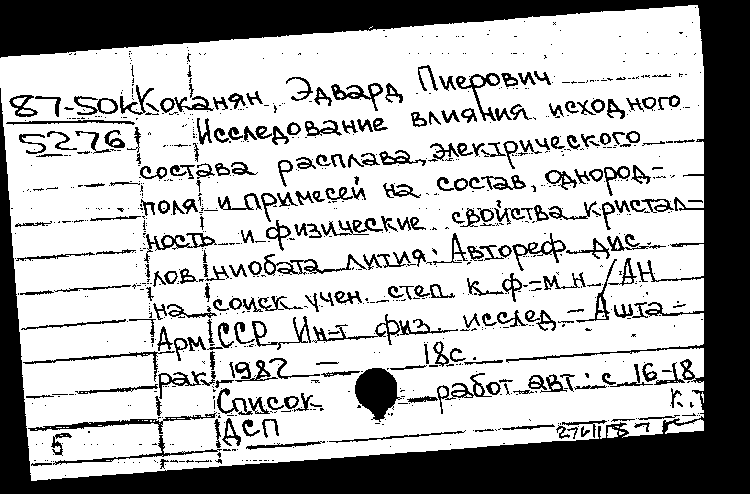 87-50к Коканян, Эдвард Пиерович
5276 Исследование влияния исходного
состава расплава, электрического
поля и примесей на состав, однород-
ность и физические свойства кристал-
лов ниобата лития: Автореф. дис.
на соиск. учен. степ. к. ф-м. н. / АН
Арм ССР, Ин-т физ. исслед. - Ашта-
рак, 1987 - 18с.
Список работ авт.: с 16-18
К.Т
5 ДСП